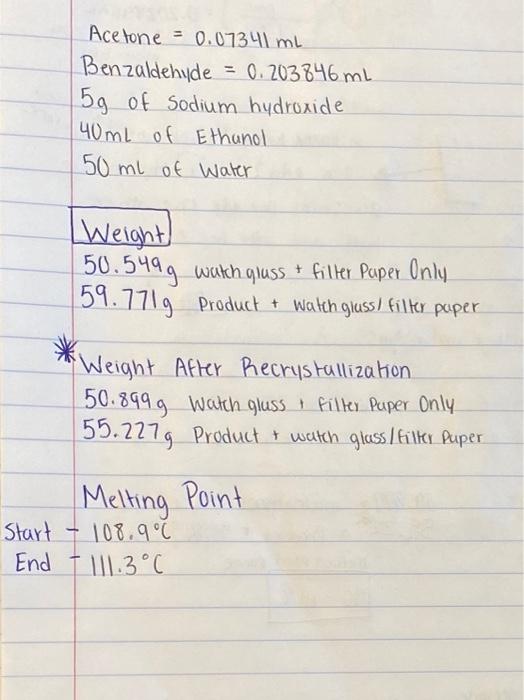 Acetone = 0.07341 mL
Benzaldehyde = 0.203846 mL
5g of Sodium hydroxide
40mL of Ethanol
50 ml of Water
Weight
50.549g watch glass + filter Paper Only
59.771g Product + watch glass/filter paper
* Weight After Recrystallization
50.899g Watch glass + Filter Paper Only
55.227g Product + watch glass/filter Paper
Melting Point
Start - 108.9°C
End - 111.3°C